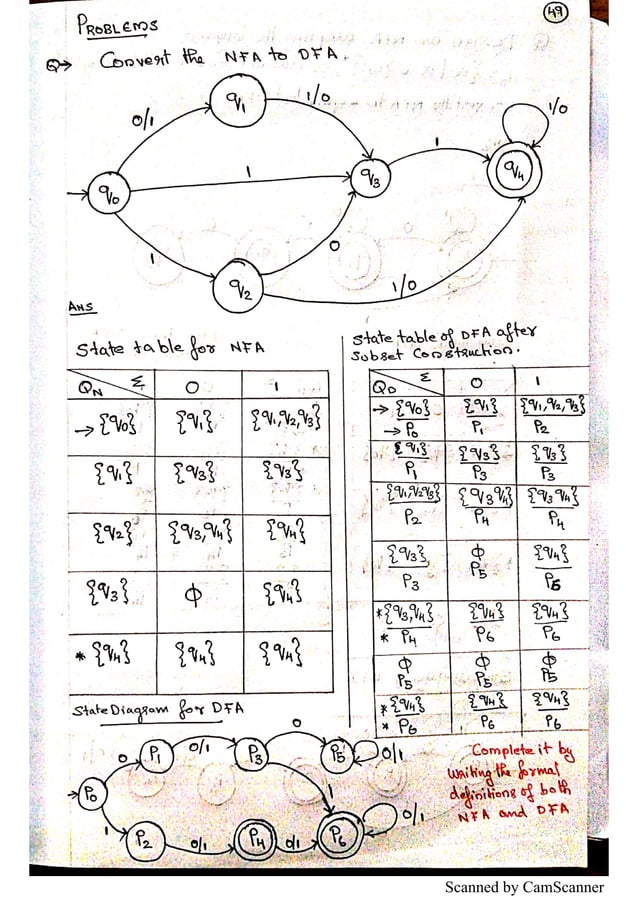 49
PROBLEMS
Q→ Convert the NFA to DFA.
q1
0/1
1/0
1/0
1
q0
1
q3
q4
1
0
q2
1/0
ANS
State table for NFA
QN Σ 0 1
→ {q0} {q1} {q1,q2,q3}
{q1} {q3} {q3}
{q2} {q3,q4} {q4}
{q3} ϕ {q4}
* {q4} {q4} {q4}
State table of DFA after
Subset Construction.
QD Σ 0 1
→ {q0} {q1} {q1,q2,q3}
→ P0 P1 P2
{q1} {q3} {q3}
P1 P3 P3
{q1,q2q3} {q3q4} {q3q4}
P2 P4 P4
{q3} ϕ {q4}
P3 P5 P6
*{q3,q4} {q4} {q4}
* P4 P6 P6
ϕ ϕ ϕ
P5 P5 P5
*{q4} {q4} {q4}
* P6 P6 P6
State Diagram for DFA
0
P1 0/1 P3 P5 0/1
0
P0
1
1
P2 0/1 P4 0/1 P6 0/1
Complete it by
writing the formal
definitions of both
NFA and DFA
Scanned by CamScanner